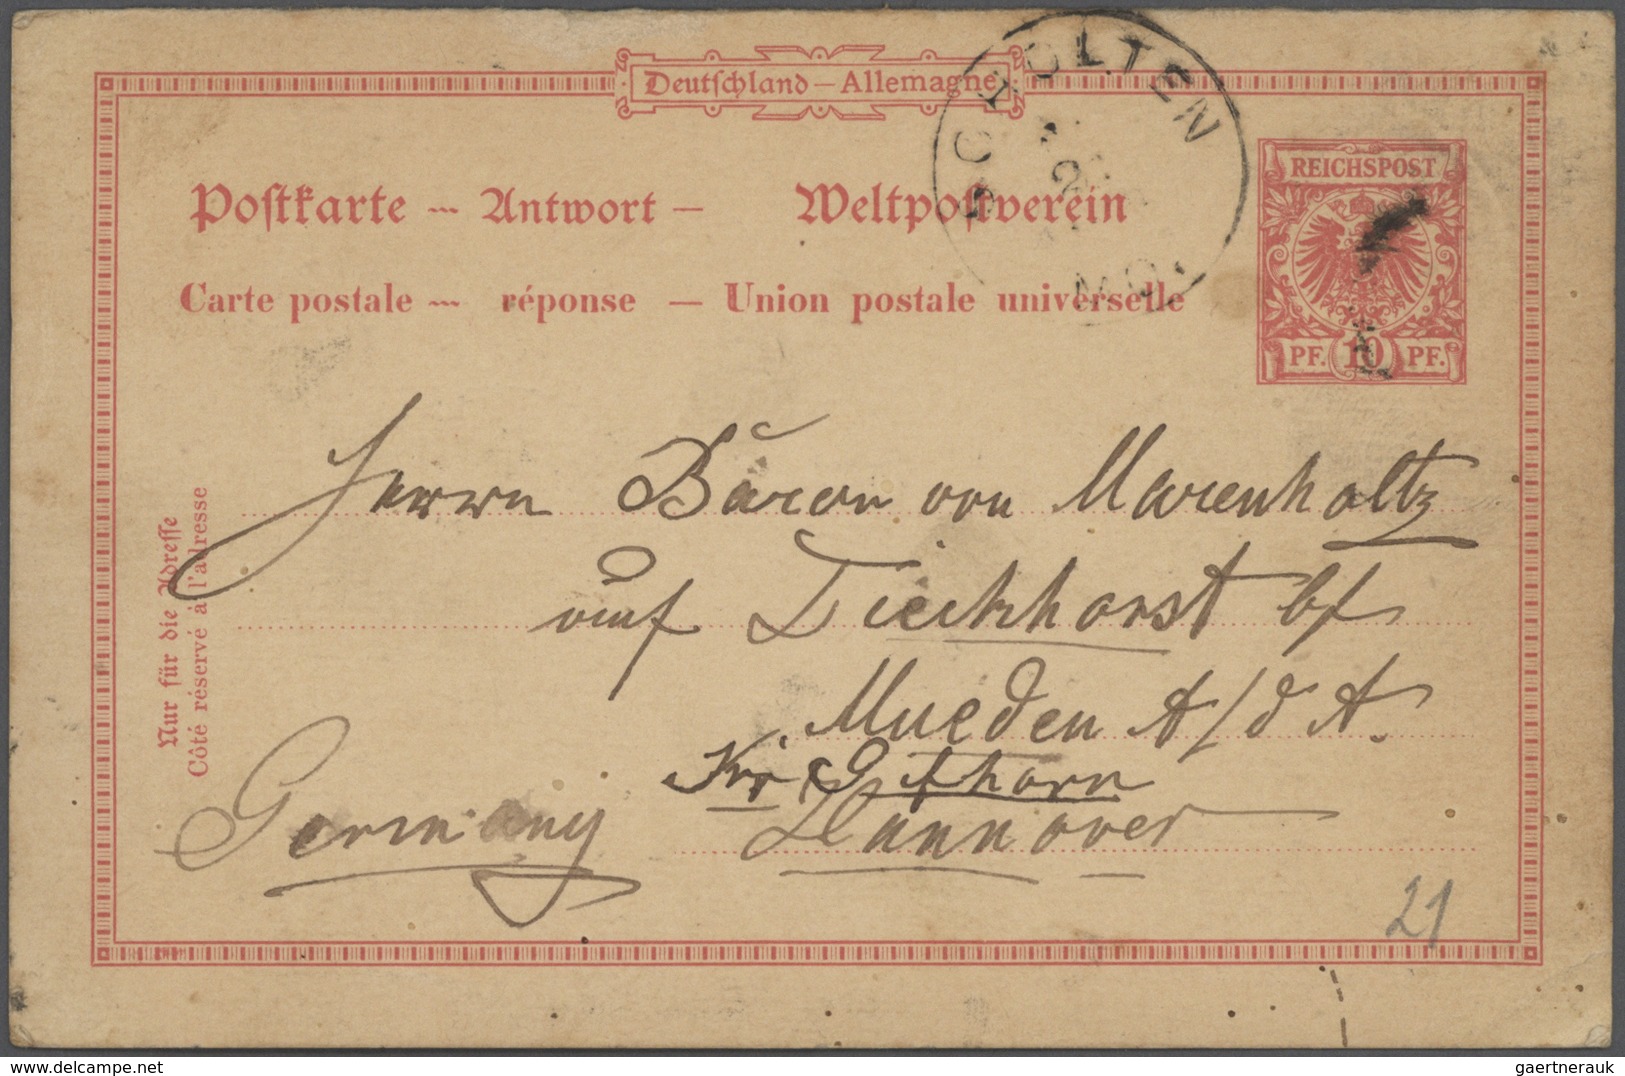 Deutschland – Allemagne
Postkarte – Antwort – Weltpostverein
Carte postale – réponse – Union postale universelle
REICHSPOST
PF. 10 PF.
MO.
Nur für die Adresse
Côté réservé à l'adresse
Herrn Baron von Marenholtz
auf Dieckhorst bf
Mueden A/d A.
Kr. Gifhorn
Germany Hannover
21
gaertnerauk